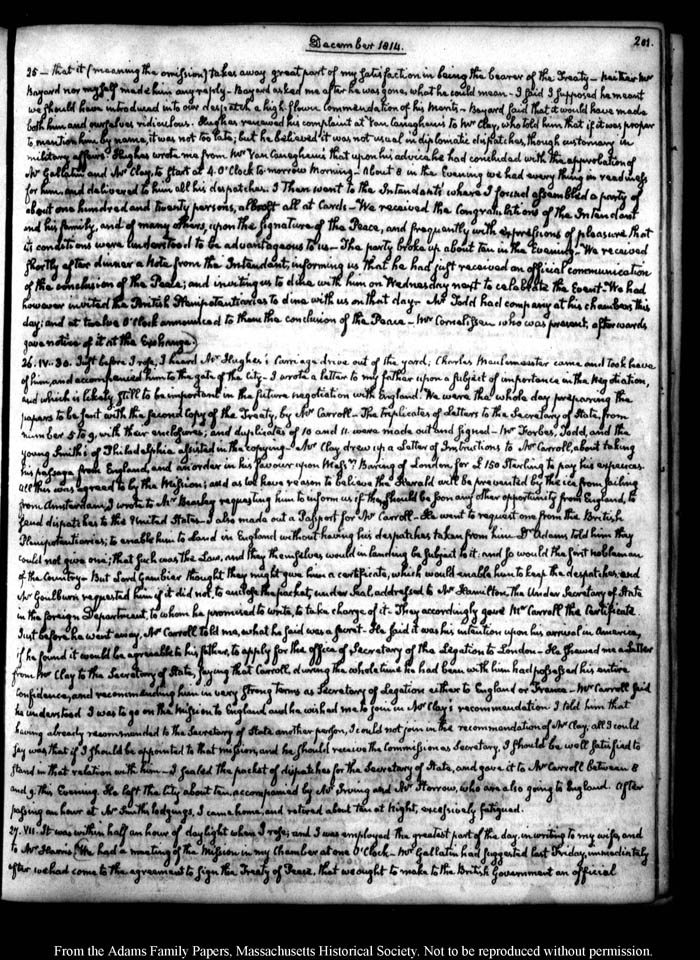 December 1814.
201.
25 — that it (meaning the omission) takes away great part of my satisfaction in being the bearer of the Treaty — Neither Mr
Bayard nor myself made him any reply — Bayard asked me after he was gone, what he could mean — I said I supposed he meant
we should have introduced into our despatch a high-flown commendation of his Merits — Bayard said that it would have made
both him and ourselves ridiculous. Hughes renewed his complaint at Van Caneghem's to Mr Clay, who told him that if it was proper
to mention him by name, it was not too late; but he believed it was not usual in diplomatic dispatches, though customary in
military affairs. Hughes wrote me from Mr Van Caneghem's that upon his advice he had concluded with the approbation of
Mr Gallatin and Mr Clay, to start at 4. O'Clock to-morrow Morning — About 8 in the Evening we had every thing in readiness
for him, and delivered to him all his despatches. I then went to the Intendant's where I found assembled a party of
about one hundred and twenty persons, almost all at Cards — We received the Congratulations of the Intendant
and his family, and of many others, upon the signature of the Peace, and frequently with expressions of pleasure that
its conditions were understood to be advantageous to us — The party broke up about ten in the Evening — We received
shortly after dinner a Note from the Intendant, informing us that he had just received an official communication
of the conclusion of the Peace; and inviting us to dine with him on Wednesday next to celebrate the Event. We had
however invited the British Plenipotentiaries to dine with us on that day — Mr Todd had company at his chambers this
day; and at twelve O'Clock announced to them the conclusion of the Peace — Mr Cornelissen who was present, afterwards
gave notice of it at the Exchange.
26. IV. 30. Just before I rose, I heard Mr Hughes's Carriage drive out of the yard; Charles Meulemeester came and took leave
of him, and accompanied him to the gate of the City — I wrote a letter to my father upon a subject of importance in the Negotiation,
and which is likely still to be important in the future negotiation with England. We were the whole day preparing the
papers to be sent with the second Copy of the Treaty, by Mr Carroll — The triplicates of Letters to the Secretary of State, from
number 5 to 9, with their enclosures; and duplicates of 10 and 11 were made out and signed — Mr Forbes, Todd, and the
young Smiths of Philadelphia assisted in the copying — Mr Clay drew up a Letter of Instructions to Mr Carroll, about taking
his passage from England, and an order in his favour upon Messrs Baring of London for £150 Sterling to pay his expences.
All this was agreed to by the Mission; and as we have reason to believe the Herald will be prevented by the ice from sailing
from Amsterdam, I wrote to Mr Beasley requesting him to inform us if there should be soon any other opportunity from England, to
send dispatches to the United States — I also made out a Passport for Mr Carroll — He went to request one from the British
Plenipotentiaries; to enable him to land in England without having his despatches taken from him. Dr Adams told him they
could not give one; that such was the Law, and they themselves would in landing be subject to it, and so would the first nobleman
of the Country — But Lord Gambier thought they might give him a certificate, which would enable him to keep the despatches, and
Mr Goulburn requested him if it did not, to enclose the packet, under seal, addressed to Mr Hamilton, the Under Secretary of State
in the foreign Department, to whom he promised to write, to take charge of it. They accordingly gave Mr Carroll the Certificate
Just before he went away, Mr Carroll told me, what he said was a secret — He said it was his intention upon his arrival in America,
if he found it would be agreeable to his father, to apply for the office of Secretary of the Legation to London — He shewed me a Letter
from Mr Clay to the Secretary of State, saying that Carroll, during the whole time he had been with him had possessed his entire
Confidence, and recommending him in very strong terms as Secretary of Legation either to England or France — Mr Carroll said
he understood I was to go on the Mission to England and he wished me to join in Mr Clay's recommendation. I told him that
having already recommended to the Secretary of State another person, I could not join in the recommendation of Mr Clay, all I could
say was that if I should be appointed to that mission, and he should receive the Commission as Secretary, I should be well satisfied to
stand in that relation with him — I sealed the packet of dispatches for the Secretary of State, and gave it to Mr Carroll between 8
and 9 this Evening. He left the City about ten, accompanied by Mr Irving and Mr Storrow, who are also going to England. After
passing an hour at Mr Smith's lodgings, I came home, and retired about ten at Night, excessively fatigued.
27. VII. It was within half an hour of daylight when I rose; and I was employed the greatest part of the day, in writing to my wife, and
to Mr Harris. We had a meeting of the Mission in my Chamber at one O'Clock — Mr Gallatin had suggested last Friday, immediately
after we had come to the agreement to sign the Treaty of Peace, that we ought to make to the British Government an official
From the Adams Family Papers, Massachusetts Historical Society. Not to be reproduced without permission.